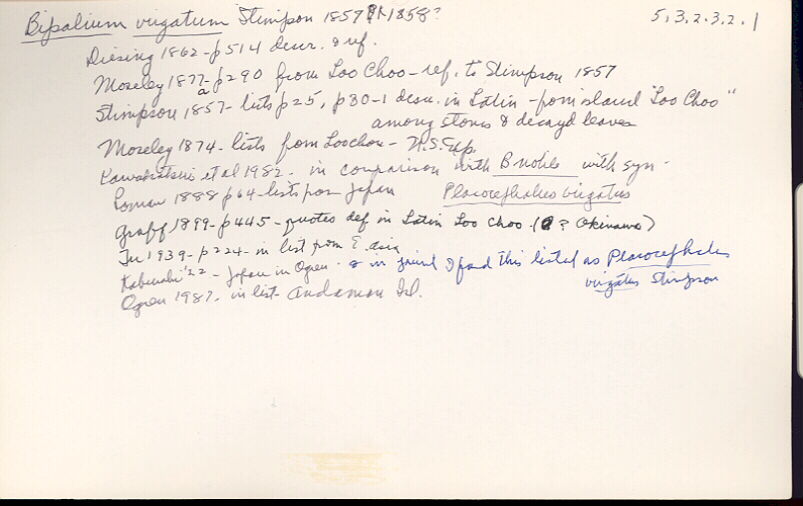 Bipalium virgatum Stimpson 1857 1858? 5.3.2.3.2.1
Diesing 1862 - p514 descr. & ref.
Moseley 1877 - p290 from Loo Choo - ref. to Stimpson 1857
a
Stimpson 1857 - lists p25, p30-1 descr. in Latin - from island "Loo Choo"
among stones & decayd leaves
Moseley 1874 - lists from Loochoo - N.S. Exp.
Kawakatsu et al 1982 - in comparison with B nobile with syn -
Placocephalus virgatus
Loman 1888 p64 - lists from Japan
Graff 1899 - p445 - quotes def in Latin Loo Choo (? Okinawa)
Tu 1939 - p224 - in list from E. Asia
Kaburaki '22 - Japan in Ogren. & in I find this listed as Placocephalus
virgatus Stimpson
Ogren 1987. in list - Andaman Isl.